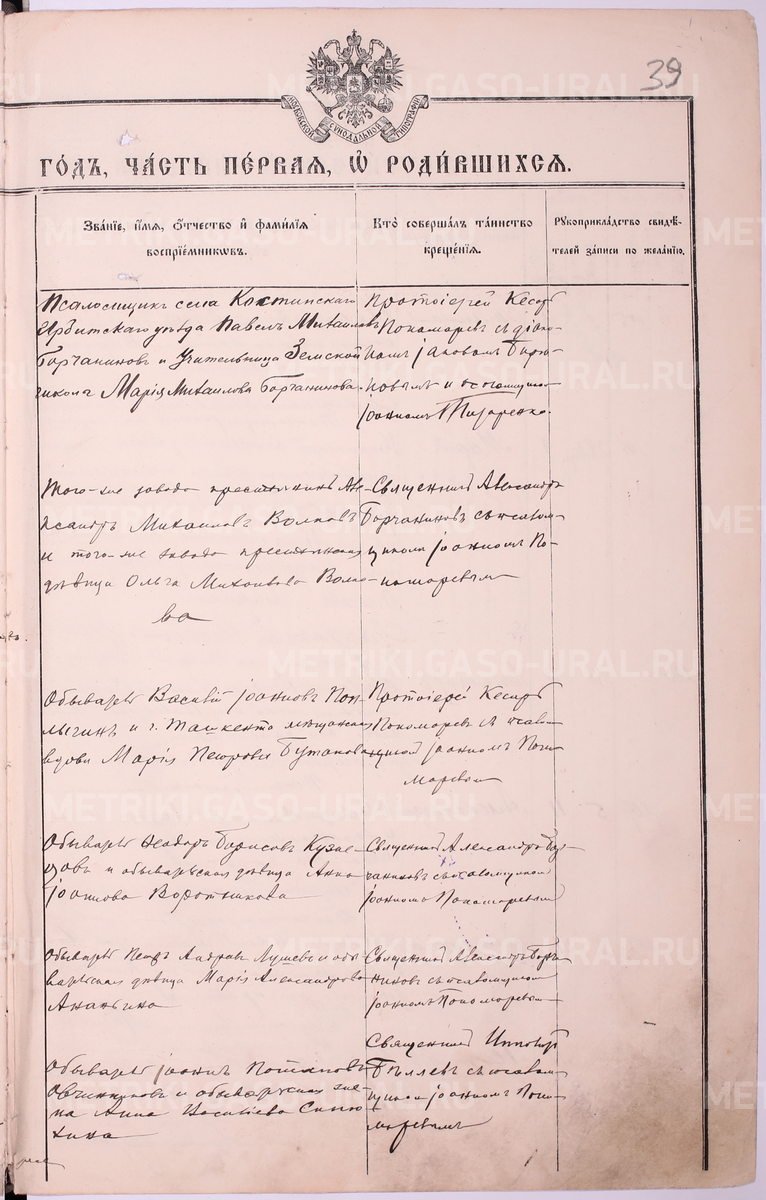 39
МОСКОВСКОЙ СѴНОДАЛЬНОЙ ТИПОГРАФІИ
ГО́ДЪ, ЧА́СТЬ ПЕ́РВАЯ, Ѡ҆ РОДИ́ВШИХСЯ.
Зва́нїе, и҆́мя, ѻ҆́тчество и҆ фами́лїя
воспрїе́мникѡвъ.
Кто̀ соверша́лъ та́инство
креще́нїя.
Рꙋкоприкла́дство свидѣ́-
телей за́писи по жела́нїю.
Псаломщикъ села Костинскаго
Ирбитскаго уѣзда Павелъ Михаиловъ
Борчаниновъ и Учительница Земской
школы Марія Михаилова Борчанинова.
Протоіерей Кесарь
Пономаревъ съ діако-
номъ Іаковомъ
и псаломщикомъ
Іоанномъ
Того-же завода крестьянинъ Але-
ксандръ Михаиловъ Волковъ
и того-же завода крестьянская
дѣвица Ольга Михаилова Волко-
ва
Священникъ Александръ
Борчаниновъ съ псалом-
щикомъ Іоанномъ По-
номаревымъ
Обыватель Василій Іоанновъ
и г. Ташкента мѣщанская
вдова Марія Петрова Бутакова
Протоіерей Кесарь
Пономаревъ съ псалом-
щикомъ Іоанномъ Поно-
маревымъ
Обыватель Ѳеодоръ Борисовъ Кузне-
цовъ и обывательская дѣвица Анна
Іоаннова Воротникова
Священникъ Александръ Бор-
чаниновъ съ псаломщикомъ
Іоанномъ Пономаревымъ
Обыватель Петръ Андреевъ Лушевъ и обы-
вательская дѣвица Марія Александрова
Ананьина
Священникъ Александръ Борча-
ниновъ съ псаломщикомъ
Іоанномъ Пономаревымъ
Обыватель Іоаннъ Потаповъ
Овчинниковъ и обывательская же-
на Анна Васильева
Священникъ
Бѣляевъ съ псалом-
щикомъ Іоанномъ Поно-
маревымъ
METRIKI.GASO-URAL.RU